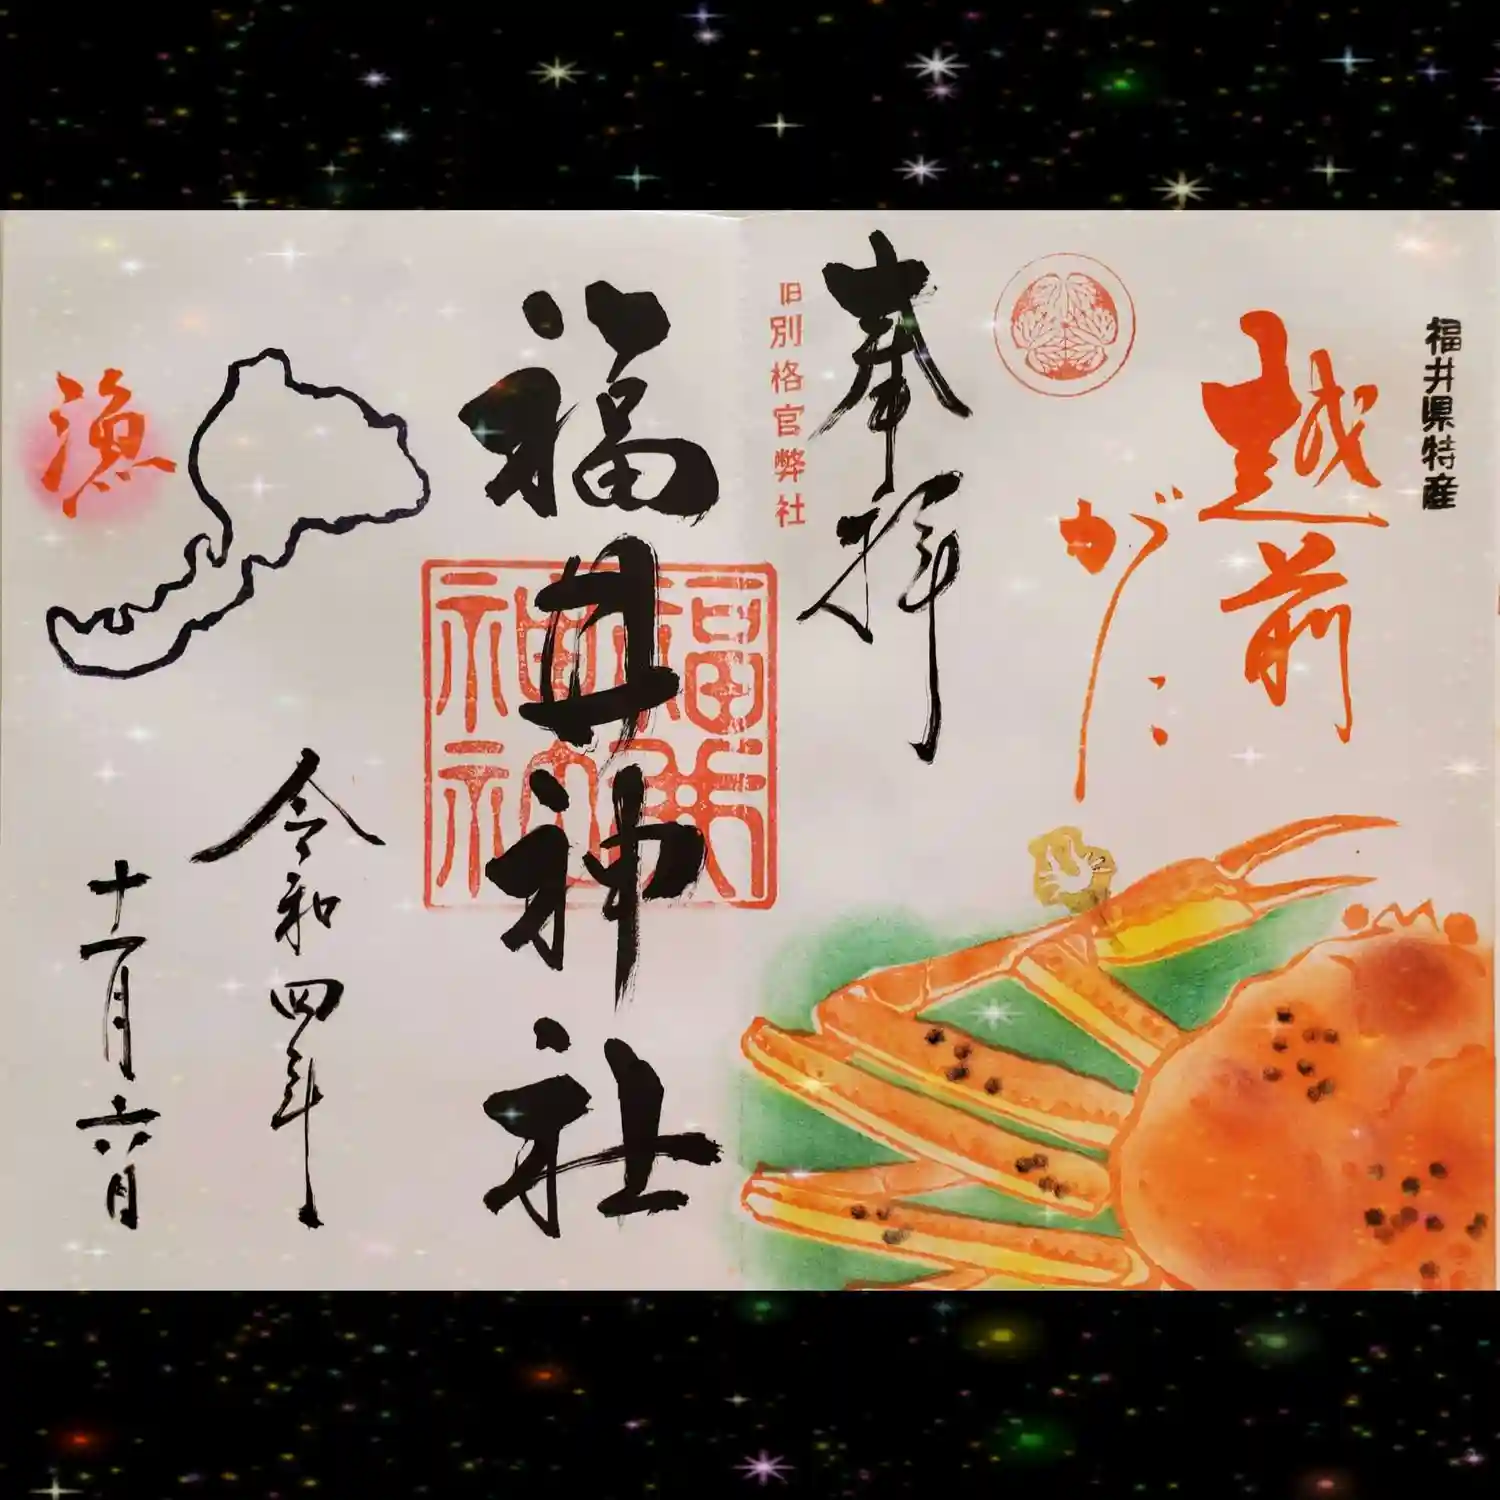 福井県特産
越前
がに
奉拝
旧別格官弊社
福井神社
令和四年
十一月六日
漁